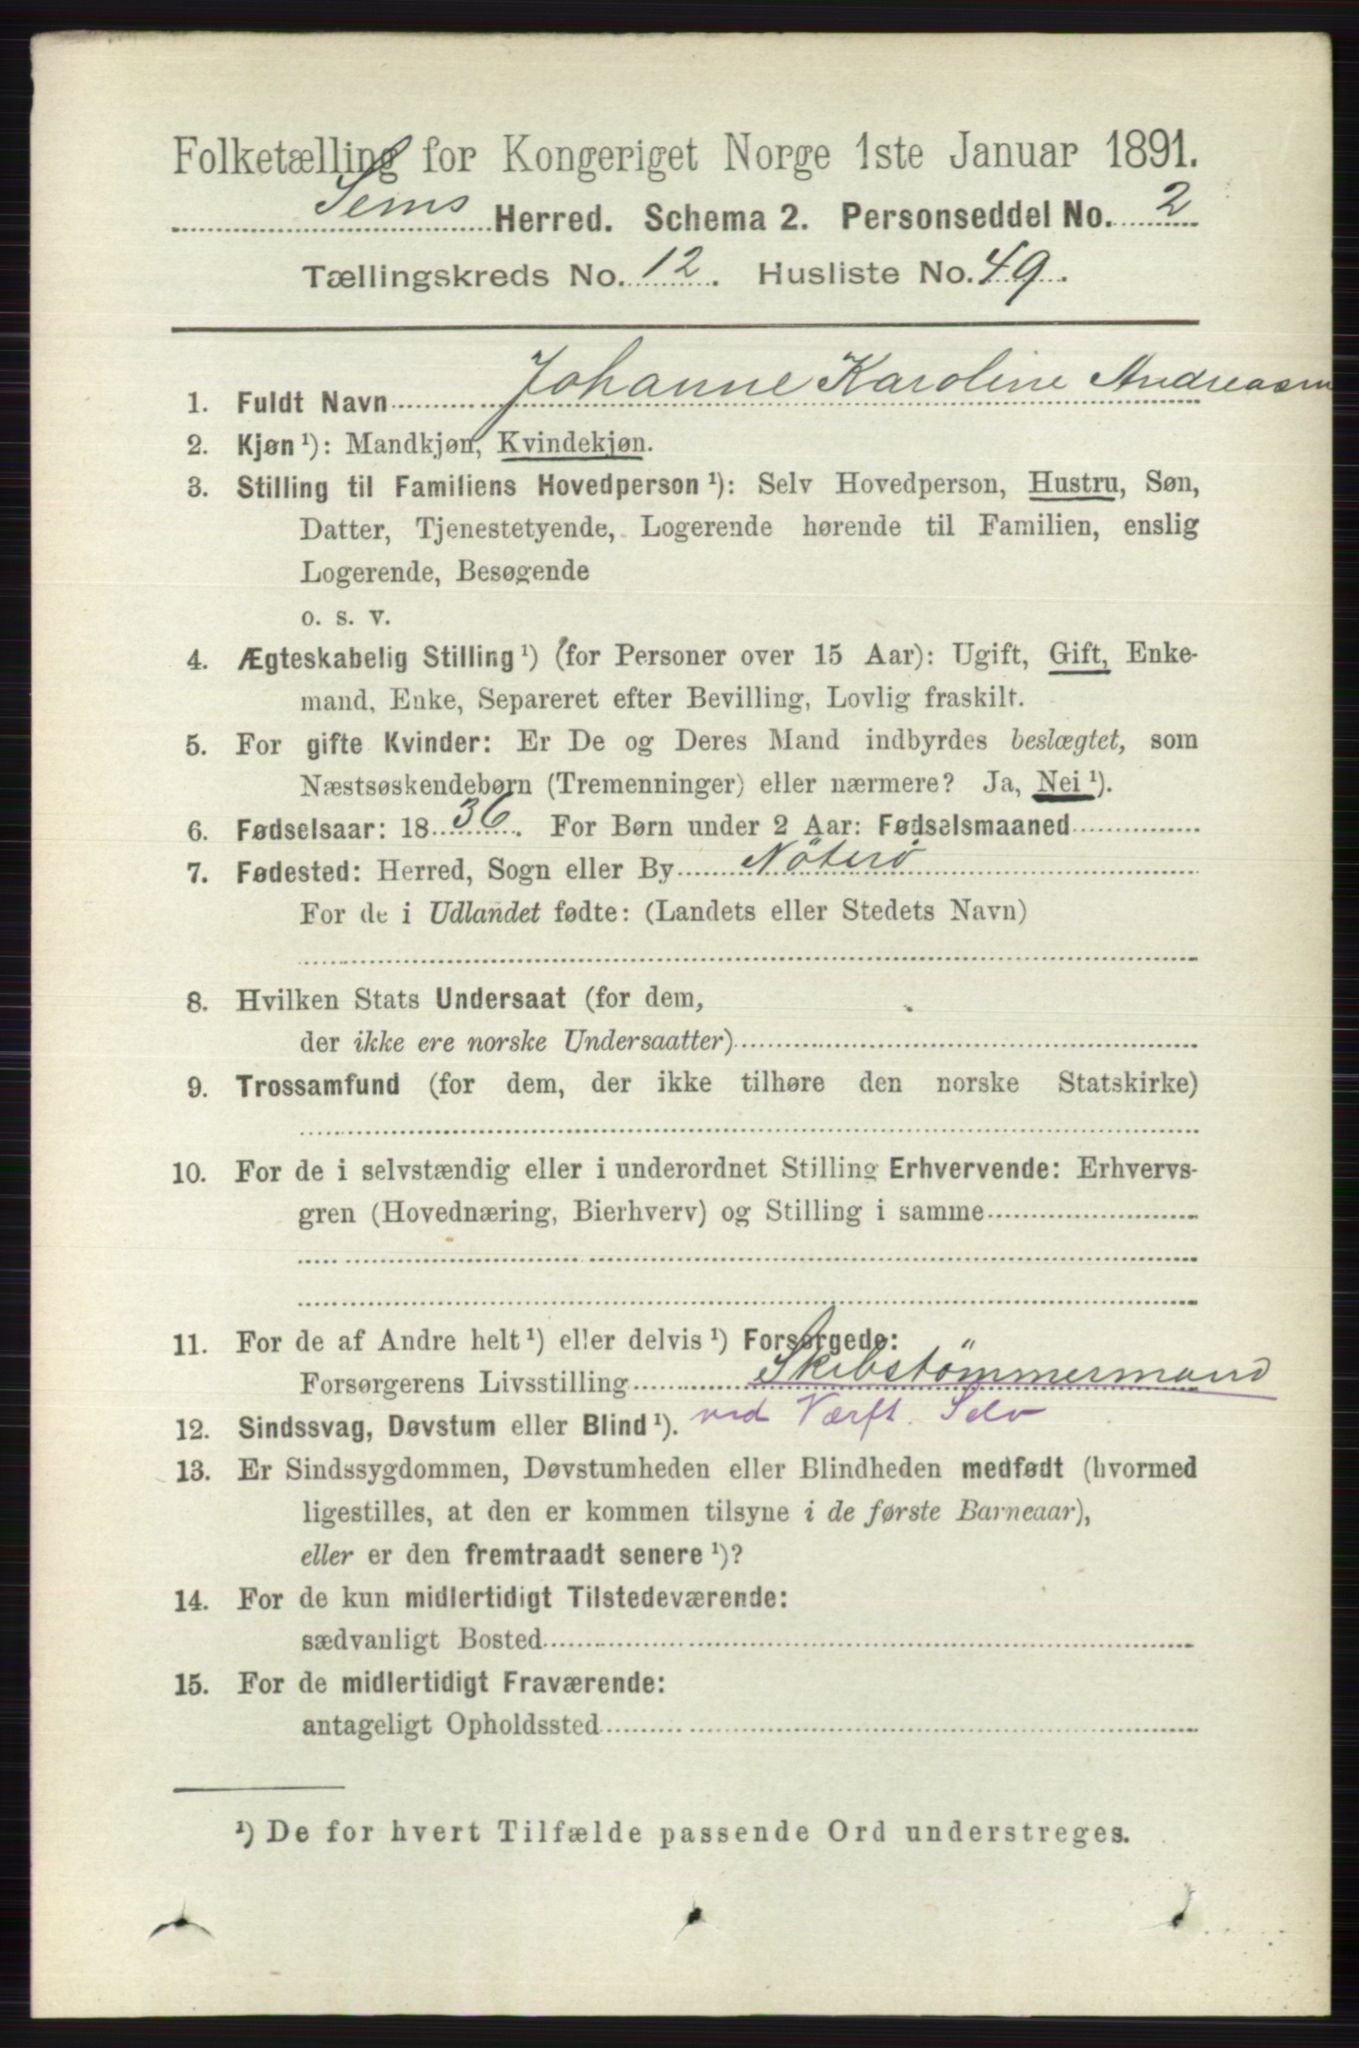 Folketælling for Kongeriget Norge 1ste Januar 1891.
Sems Herred. Schema 2. Personseddel No. 2
Tællingskreds No. 12. Husliste No. 49.
1. Fuldt Navn Johanne Karoline Andreasen
2. Kjøn ¹): Mandkjøn, Kvindekjøn.
3. Stilling til Familiens Hovedperson ¹): Selv Hovedperson, Hustru, Søn,
Datter, Tjenestetyende, Logerende hørende til Familien, enslig
Logerende, Besøgende
o. s. v.
4. Ægteskabelig Stilling ¹) (for Personer over 15 Aar): Ugift, Gift, Enke-
mand, Enke, Separeret efter Bevilling, Lovlig fraskilt.
5. For gifte Kvinder: Er De og Deres Mand indbyrdes beslægtet, som
Næstsøskendebørn (Tremenninger) eller nærmere? Ja, Nei ¹).
6. Fødselsaar: 1836. For Børn under 2 Aar: Fødselsmaaned
7. Fødested: Herred, Sogn eller By Nöterö
For de i Udlandet fødte: (Landets eller Stedets Navn)
8. Hvilken Stats Undersaat (for dem,
der ikke ere norske Undersaatter)
9. Trossamfund (for dem, der ikke tilhøre den norske Statskirke)
10. For de i selvstændig eller i underordnet Stilling Erhvervende: Erhvervs-
gren (Hovednæring, Bierhverv) og Stilling i samme
11. For de af Andre helt ¹) eller delvis ¹) Forsørgede:
Forsørgerens Livsstilling Skibstömmermand
ved Værft. Selv
12. Sindssvag, Døvstum eller Blind ¹).
13. Er Sindssygdommen, Døvstumheden eller Blindheden medfødt (hvormed
ligestilles, at den er kommen tilsyne i de første Barneaar),
eller er den fremtraadt senere ¹)?
14. For de kun midlertidigt Tilstedeværende:
sædvanligt Bosted
15. For de midlertidigt Fraværende:
antageligt Opholdssted
¹) De for hvert Tilfælde passende Ord understreges.